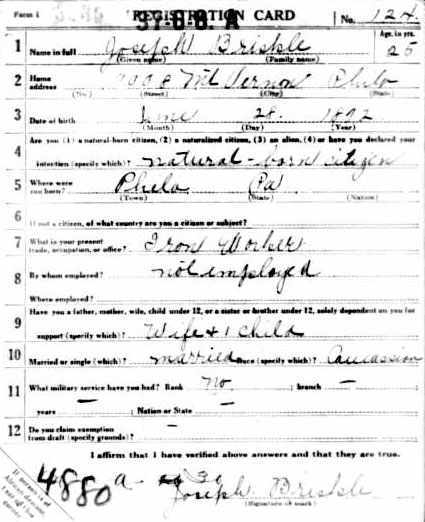 Form 1 37-8-8. A REGISTRATION CARD No. 124
1 Name in full Joseph Briskle Age, in yrs. 25
(Given name) (Family name)
2 Home address Mt Vernon Phila
(No.) (Street) (City) (State)
3 Date of birth June 28. 1892
(Month) (Day) (Year)
4 Are you (1) a natural-born citizen, (2) a naturalized citizen, (3) an alien, (4) or have you declared your
intention (specify which)? natural-born citizen
5 Where were you born? Phila Pa
(Town) (State) (Nation)
6 If not a citizen, of what country are you a citizen or subject?
7 What is your present trade, occupation, or office? Iron Worker
8 By whom employed? not employed
Where employed?
9 Have you a father, mother, wife, child under 12, or a sister or brother under 12, solely dependent on you for
support (specify which)? Wife & 1 child
10 Married or single (which)? married Race (specify which)? Caucassion
11 What military service have you had? Rank No ; branch —
years — ; Nation or State —
12 Do you claim exemption from draft (specify grounds)? —
I affirm that I have verified above answers and that they are true.
4880 a-
Joseph Briskle
(Signature or mark)
If person is of
African descent,